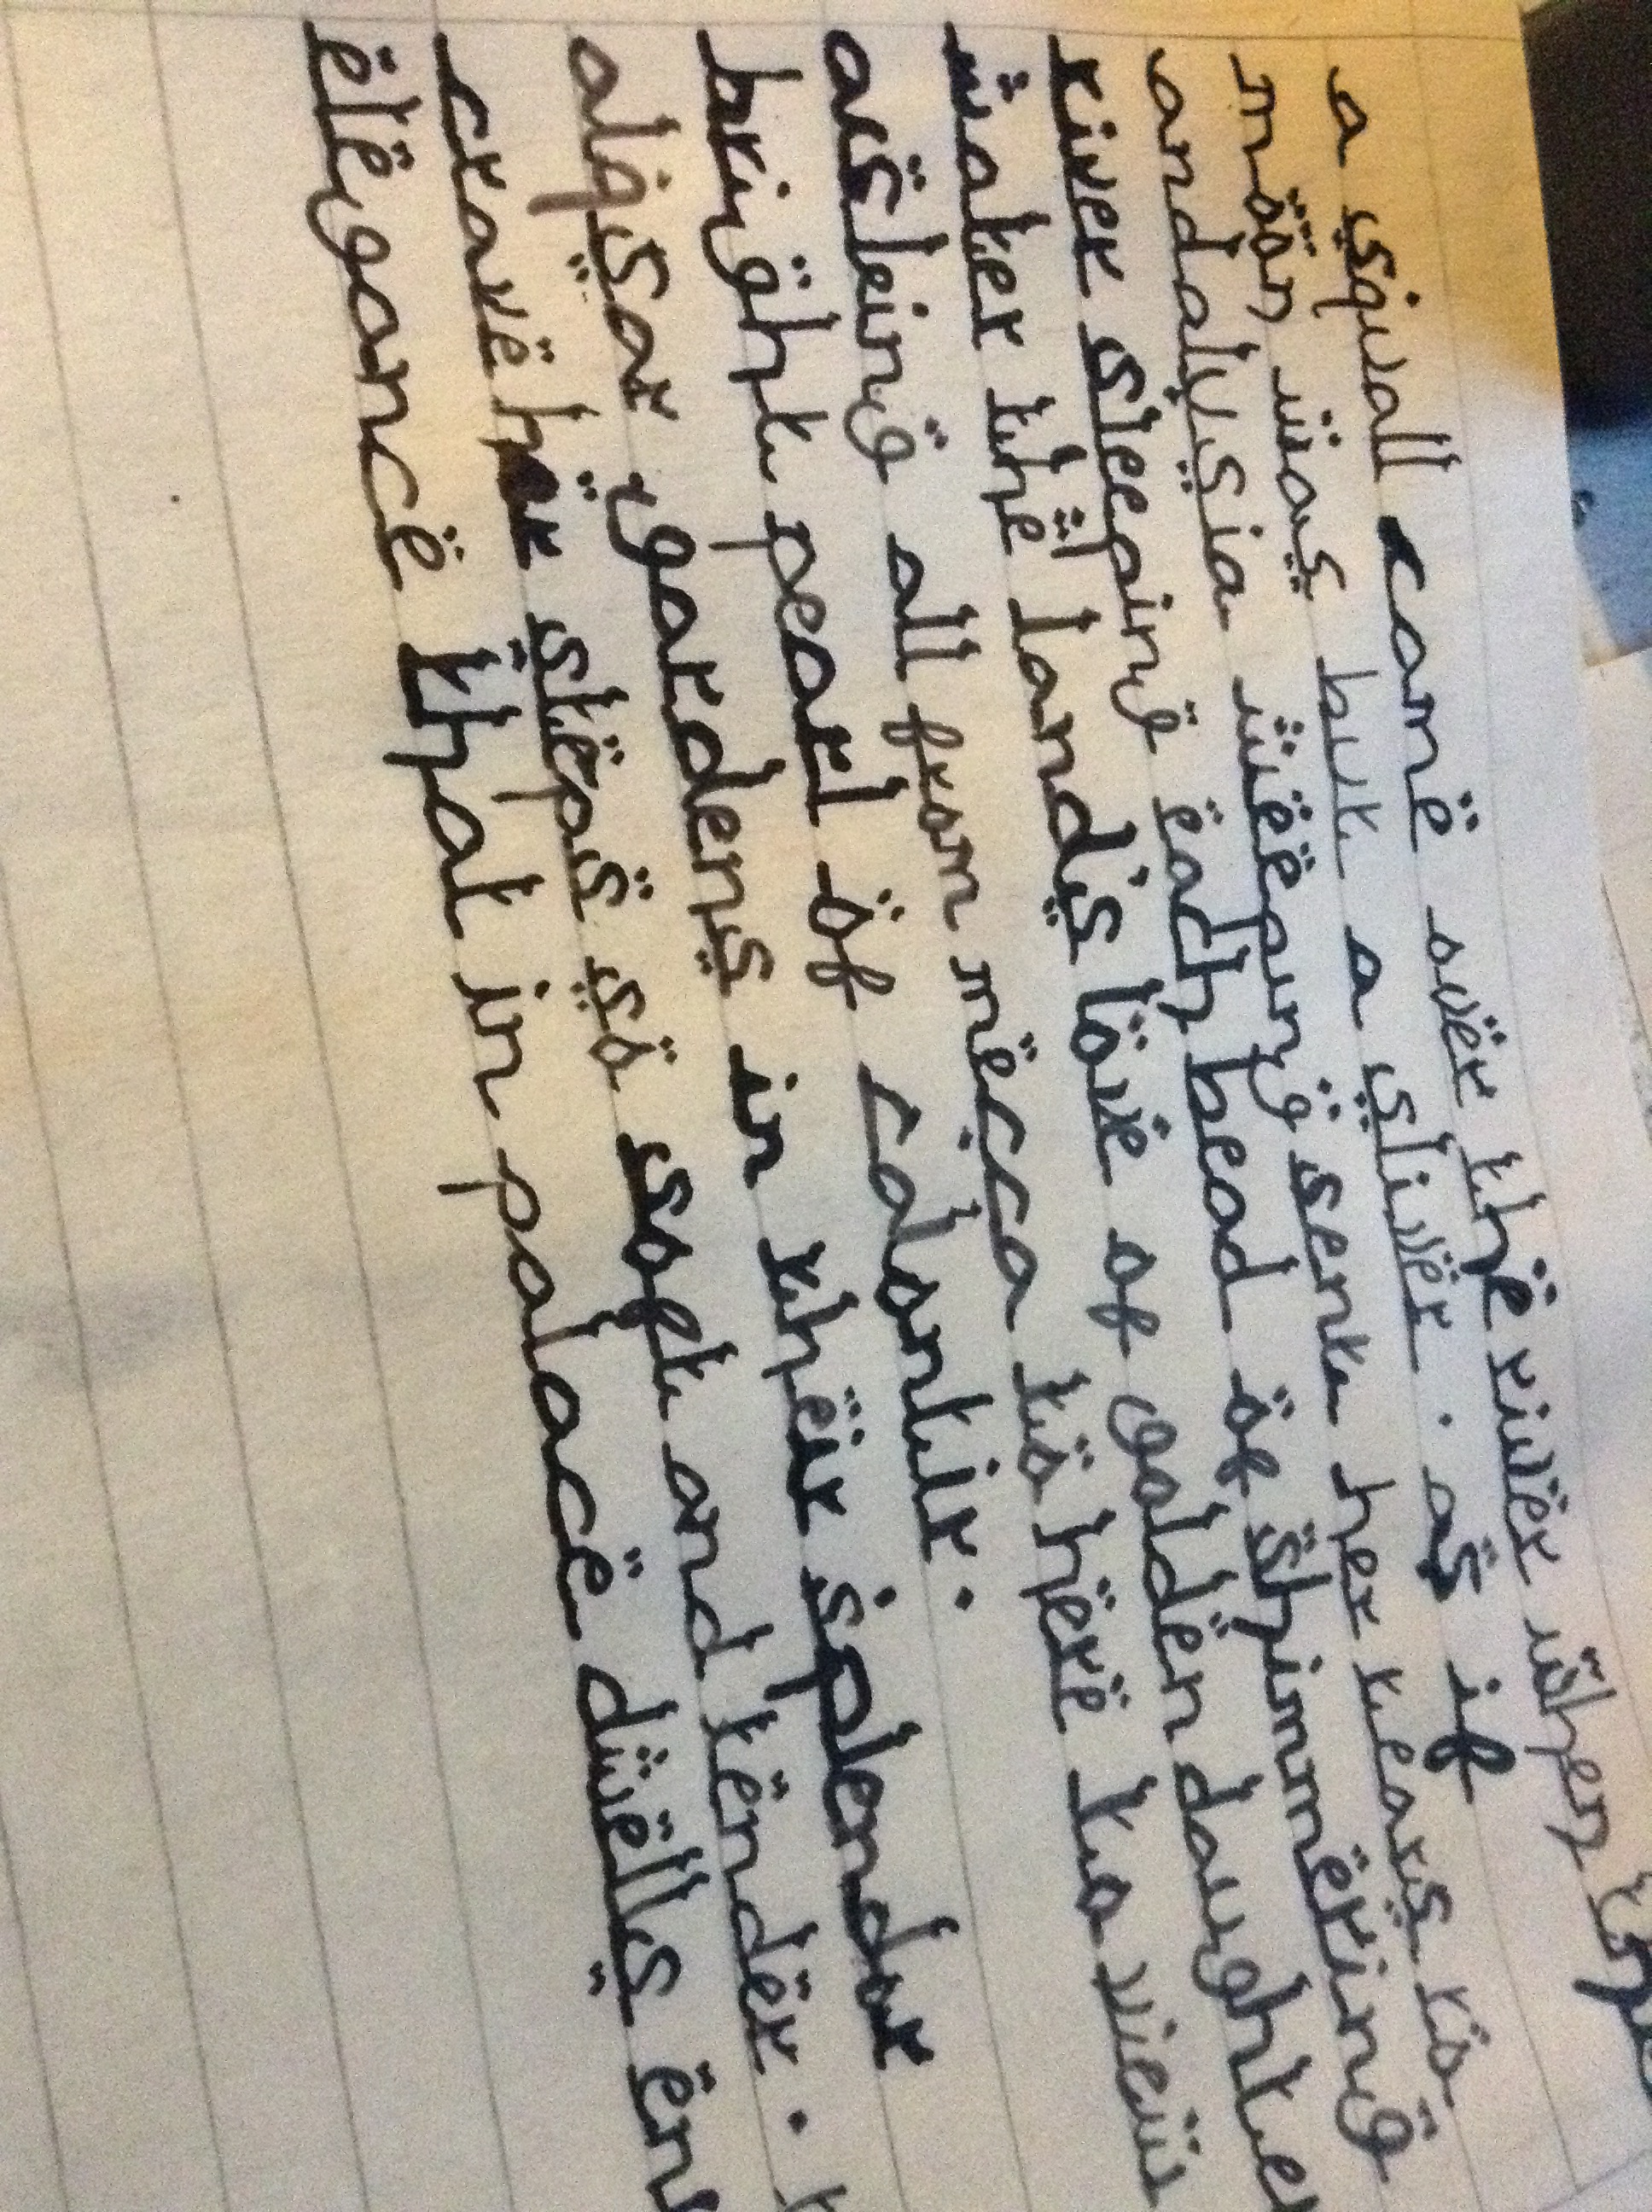 a squall came over the river when the
moon was but a sliver. as if
andalusia weeping sent her tears to
river sleeping each bead of shimmering
water the land's love of golden daughter
acleing all from mecca to here to view
bright pearl of calontir.
alqsar gardens in their splendor
crave her steps so soft and tender.
elegance that in palace dwells en